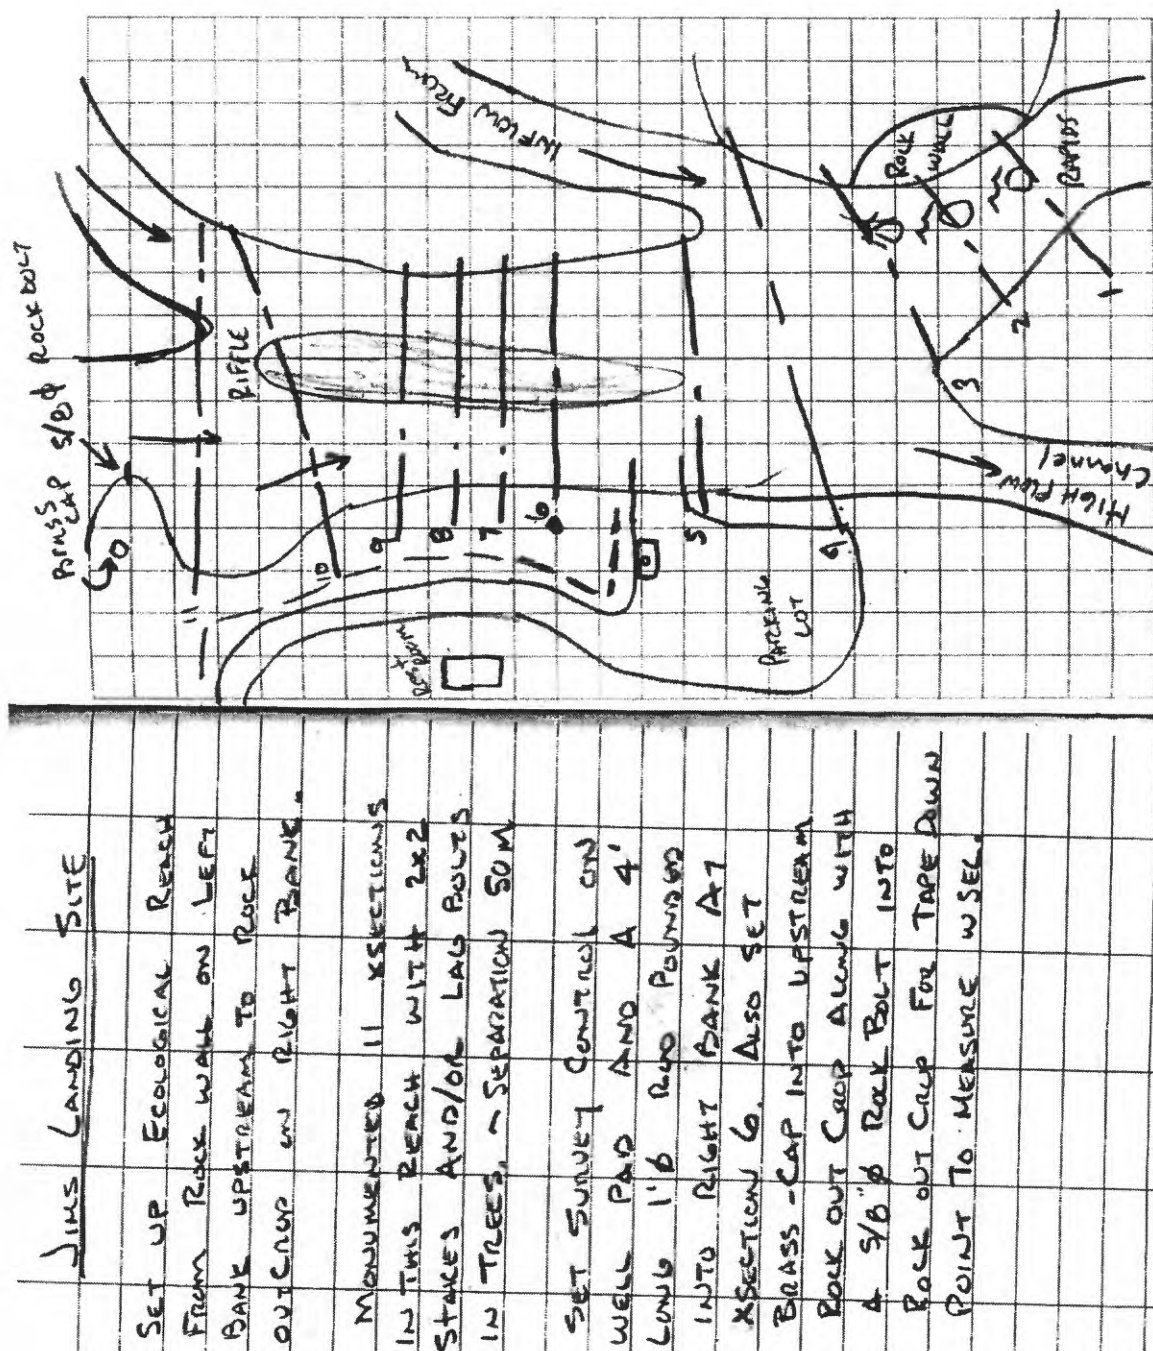 JIMS LANDING SITE
SET UP ECOLOGICAL REACH
FROM ROCK WALL ON LEFT
BANK UPSTREAM TO ROCK
OUTCROP ON RIGHT BANK.
MONUMENTED 11 XSECTIONS
IN THIS REACH WITH 2x2
STAKES AND/OR LAG BOLTS
IN TREES. ~ SEPARATION 50M
SET SURVEY CONTROL ON
WELL PAD AND A 4'
LONG 1"Ø ROD POUNDED
INTO RIGHT BANK AT
XSECTION 6. ALSO SET
BRASS-CAP INTO UPSTREAM
ROCK OUT CROP ALONG WITH
A 5/8"Ø ROCK BOLT INTO
ROCK OUT CROP FOR TAPE DOWN
POINT TO MEASURE WSEL.
BRASS CAP
5/8Ø ROCK BOLT
0
11
10
9
8
7
6
5
4
3
2
1
RIFFLE
INFLOW FROM
ROCK WALL
RAPIDS
HIGH FLOW
Channel
PARKING
LOT
Restroom